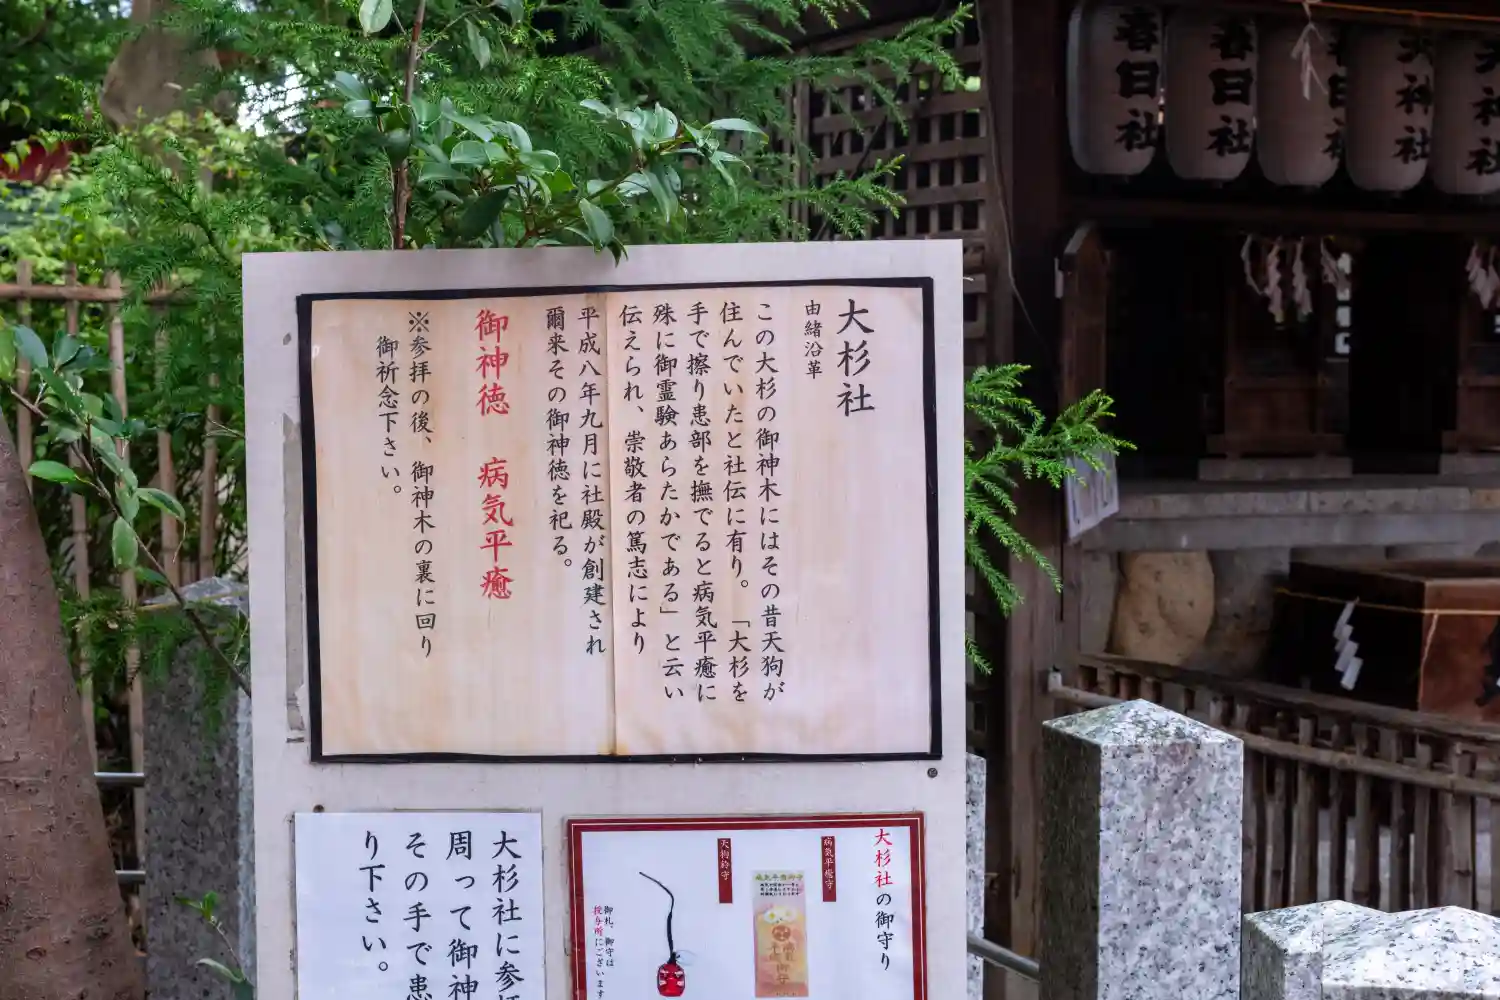 大杉社
由緒沿革
この大杉の御神木にはその昔天狗が
住んでいたと社伝に有り。「大杉を
手で擦り患部を撫でると病気平癒に
殊に御霊験あらたかである」と云い
伝えられ、崇敬者の篤志により
平成八年九月に社殿が創建され
爾来その御神徳を祀る。
御神徳 病気平癒
※参拝の後、御神木の裏に回り
御祈念下さい。
大杉社に参拝
周って御神
その手で患
り下さい。
大杉社の御守り
病気平癒守
天狗鈴守
御札、御守は
授与所にございます
春日社
春日社
春日社
天神社
天神社